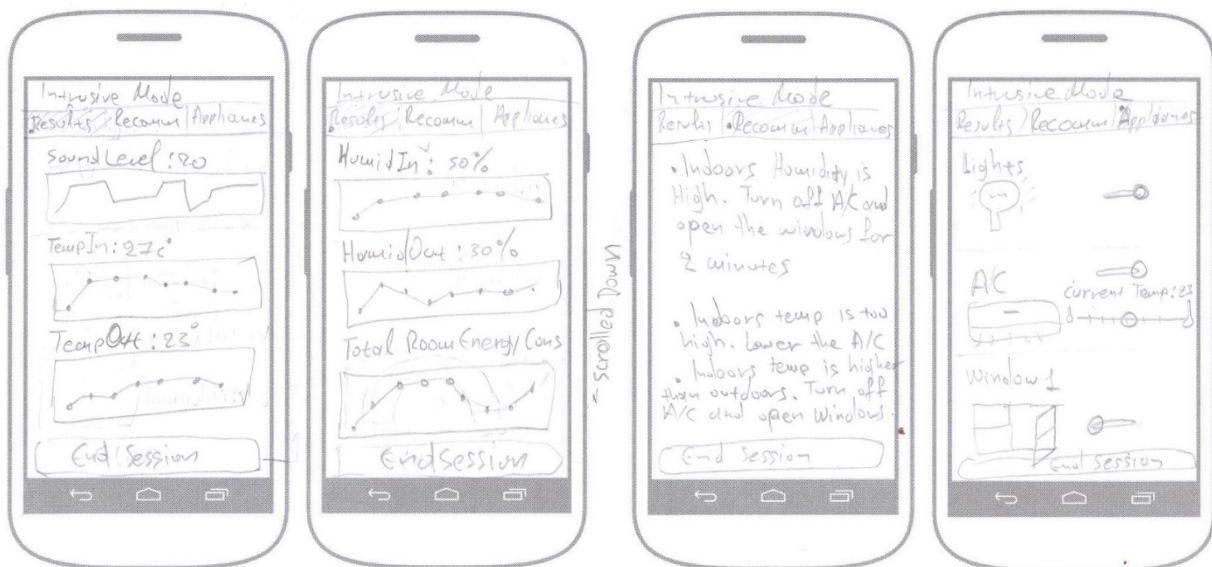 Intrusive Mode
Results Recomm Appliances
Sound Level : 20
TempIn: 27c°
TempOut : 23°
End Session
Intrusive Mode
Results Recomm Appliances
HumidIn : 50%
HumidOut : 30%
Total Room Energy Cons
End Session
← Scrolled Down
Intrusive Mode
Results Recomm Appliances
• Indoors Humidity is
High. Turn off A/C and
open the windows for
2 minutes
• Indoors temp is too
high. Lower the A/C
• Indoors temp is higher
than outdoors. Turn off
A/C and open Windows.
End Session
Intrusive Mode
Results Recomm Appliances
Lights
AC
current Temp: 23
Window 1
End Session